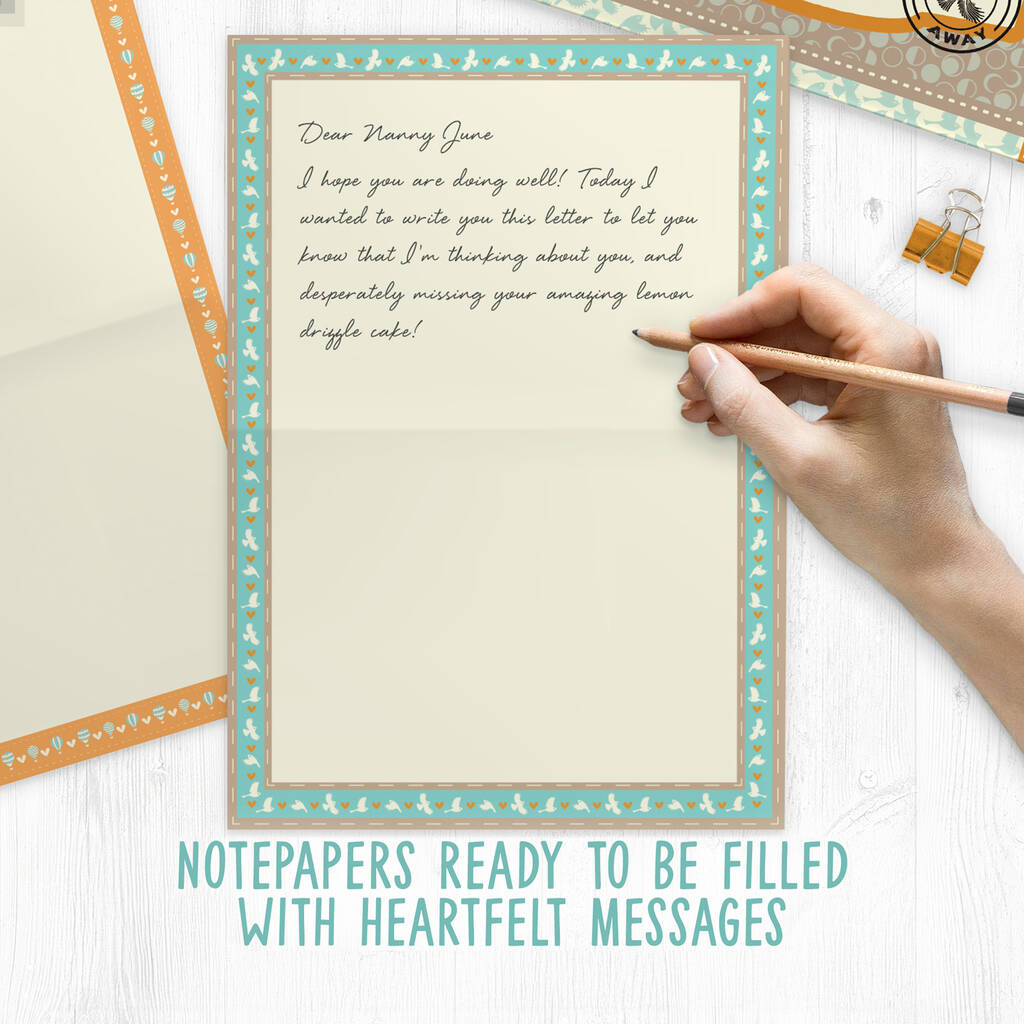 AWAY
Dear Nanny June
I hope you are doing well! Today I
wanted to write you this letter to let you
know that I'm thinking about you, and
desperately missing your amazing lemon
drizzle cake!
NOTEPAPERS READY TO BE FILLED
WITH HEARTFELT MESSAGES